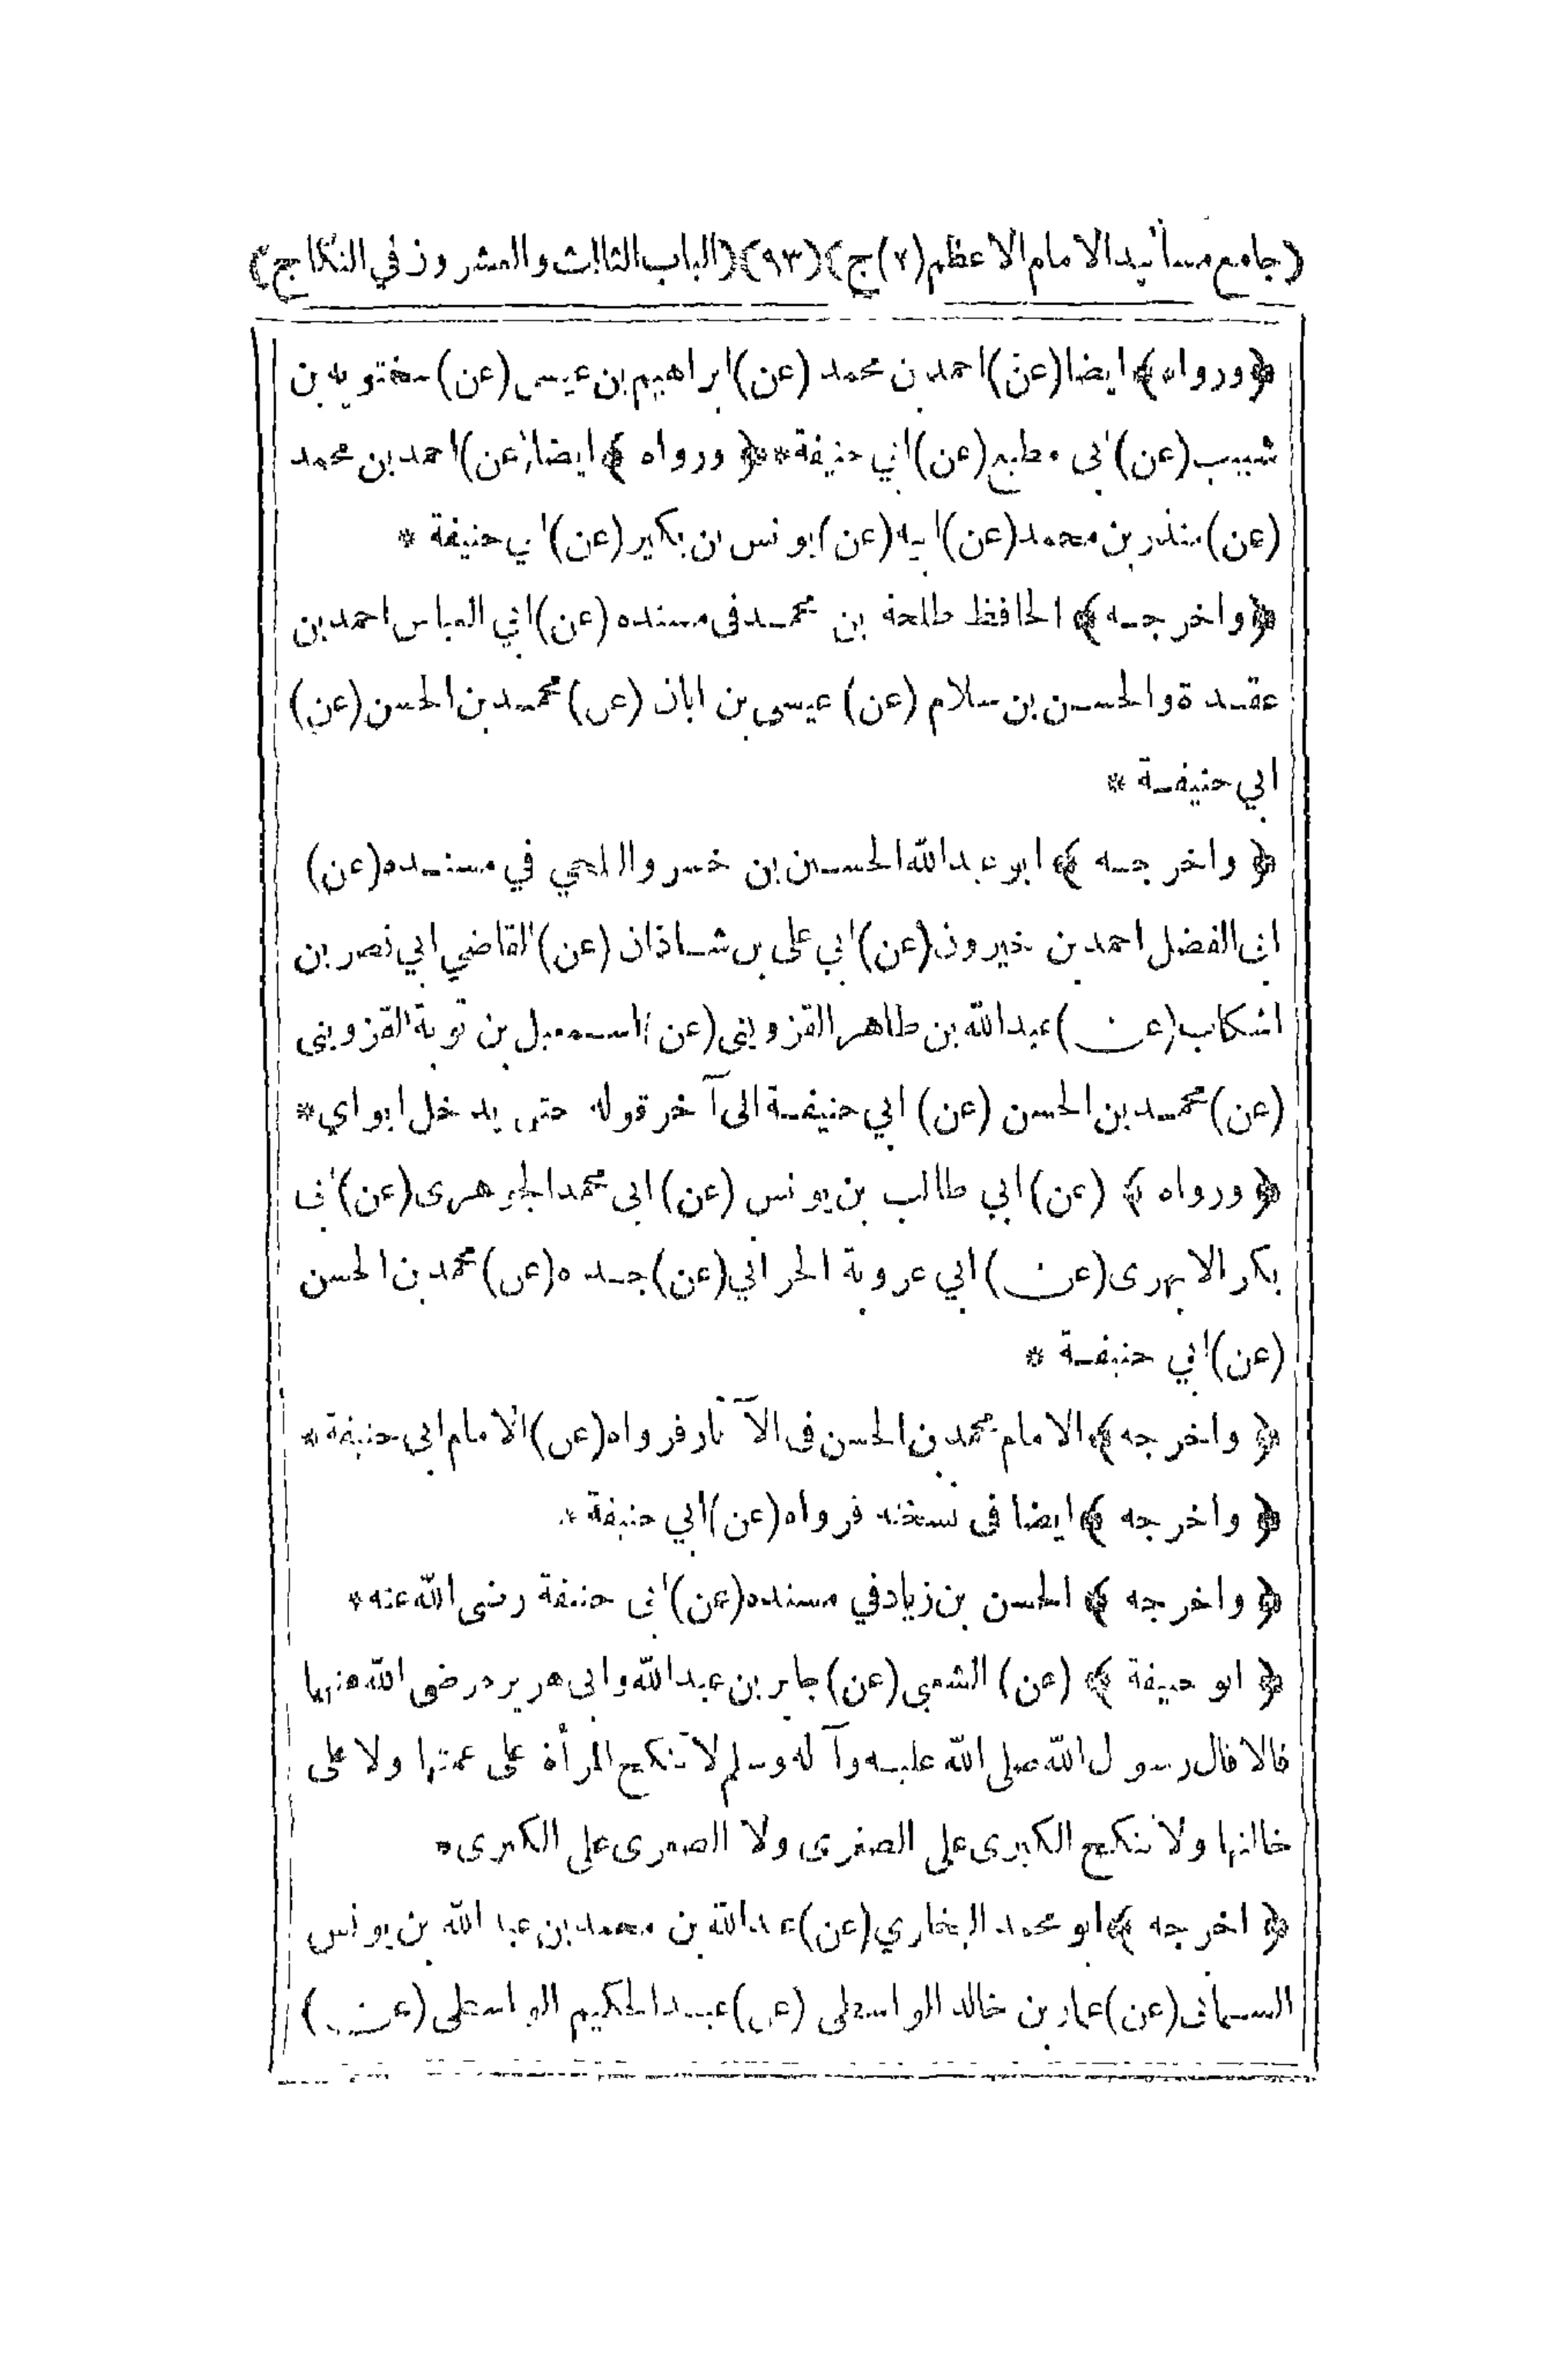 (جامع مسانيد الامام الاعظم (٢) ج) (٩٣) (الباب الثالث والعشرون في النكاح)
﴿ورواه﴾ ايضا (عن) احمد بن محمد (عن) ابراهيم بن عيسى (عن) سختويه بن
شبيب (عن) ابى مطيع (عن) ابي حنيفة * ﴿ ورواه ﴾ ايضا (عن) احمد بن محمد
(عن) منذر بن محمد (عن) ابيه (عن) يونس بن بكير (عن) ابي حنيفة *
﴿واخرجه﴾ الحافظ طلحة بن محمد فى مسنده (عن) ابي العباس احمد بن
عقدة والحسن بن سلام (عن) عيسى بن ابان (عن) محمد بن الحسن (عن)
ابي حنيفة *
﴿ واخرجه ﴾ ابو عبد الله الحسين بن خسرو البلخي في مسنده (عن)
ابى الفضل احمد بن خيرون (عن) ابي على بن شاذان (عن) القاضي ابي نصر بن
اشكاب (عن) عبد الله بن طاهر القزوينى (عن) اسمعيل بن توبة القزوينى
(عن) محمد بن الحسن (عن) ابي حنيفة الى آخر قوله حتى يدخل ابواي *
﴿ ورواه ﴾ (عن) ابي طالب بن يونس (عن) ابى محمد الجوهرى (عن) ابى
بكر الابهرى (عن) ابي عروبة الحراني (عن) جده (عن) محمد بن الحسن
(عن) ابي حنيفة *
﴿ واخرجه ﴾ الامام محمد بن الحسن فى الآثار فرواه (عن) الامام ابى حنيفة *
﴿ واخرجه ﴾ ايضا فى نسخته فرواه (عن) ابي حنيفة *
﴿ واخرجه ﴾ الحسن بن زياد في مسنده (عن) ابى حنيفة رضى الله عنه *
﴿ ابو حنيفة ﴾ (عن) الشعبى (عن) جابر بن عبد الله وابى هريرة رضى الله عنهما
قالا قال رسول الله صلى الله عليه وآله وسلم لا تنكح المرأة على عمتها ولا على
خالتها ولا تنكح الكبرى على الصغرى ولا الصغرى على الكبرى *
﴿ اخرجه ﴾ ابو محمد البخاري (عن) عبد الله بن محمد بن عبد الله بن يونس
السمانى (عن) عمار بن خالد الواسطى (عن) عبد الحكيم الواسطى (عن)